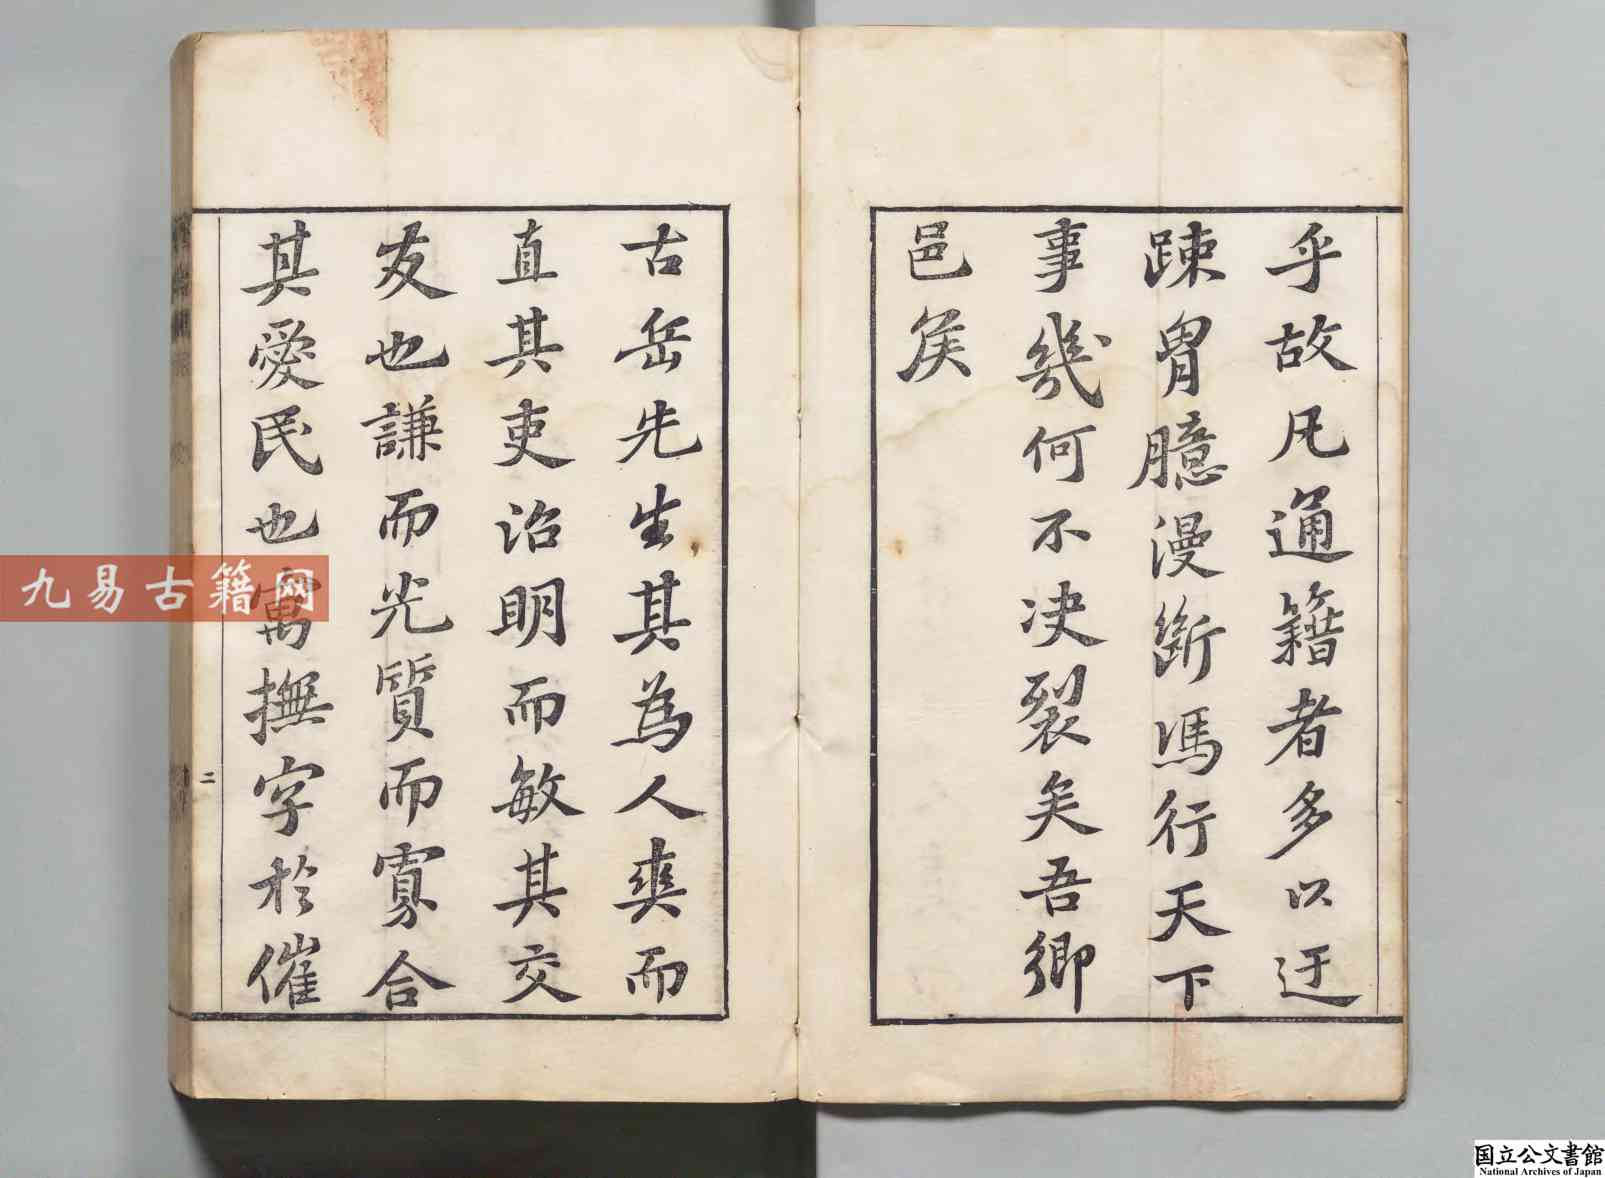 乎故凡通籍者多以迂
踈胷臆漫斷馮行天下
事幾何不决裂矣吾卿
邑矦
古岳先生其為人爽而
直其吏治明而敏其交
友也謙而光質而寡合
其愛民也寓撫字於催
二
九易古籍网
国立公文書館
National Archives of Japan